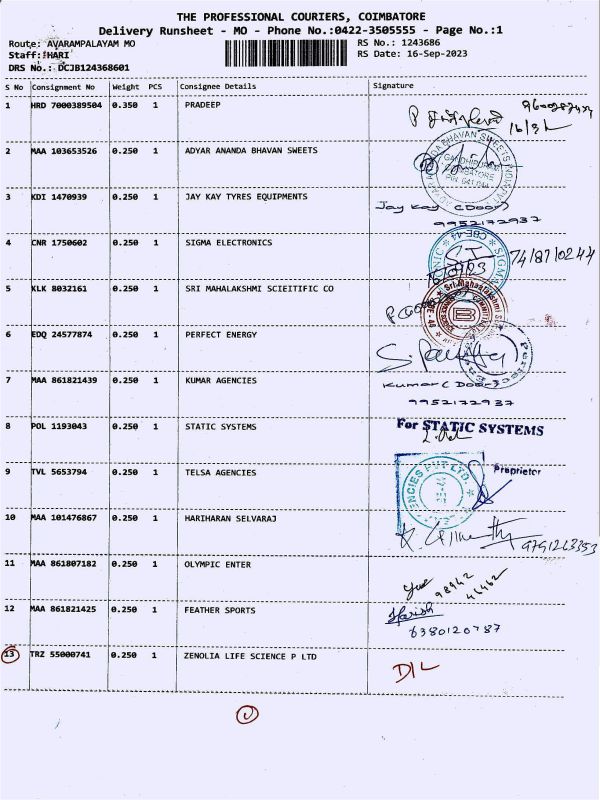 THE PROFESSIONAL COURIERS, COIMBATORE
Delivery Runsheet - MO - Phone No.:0422-3505555 - Page No.:1
Route: AVARAMPALAYAM MO RS No.: 1243686
Staff:HARI RS Date: 16-Sep-2023
DRS No.: DCJB124368601
S No Consignment No Weight PCS Consignee Details Signature
1 HRD 7000389504 0.350 1 PRADEEP
2 MAA 103653526 0.250 1 ADYAR ANANDA BHAVAN SWEETS
3 KDI 1470939 0.250 1 JAY KAY TYRES EQUIPMENTS Jay Kay (Door)
9952172937
4 CNR 1750602 0.250 1 SIGMA ELECTRONICS
5 KLK 8032161 0.250 1 SRI MAHALAKSHMI SCIEITIFIC CO
6 EDQ 24577874 0.250 1 PERFECT ENERGY
7 MAA 861821439 0.250 1 KUMAR AGENCIES Kumar (Door)
9952172937
8 POL 1193043 0.250 1 STATIC SYSTEMS For STATIC SYSTEMS
9 TVL 5653794 0.250 1 TELSA AGENCIES Proprietor
10 MAA 101476867 0.250 1 HARIHARAN SELVARAJ
11 MAA 861807182 0.250 1 OLYMPIC ENTER
12 MAA 861821425 0.250 1 FEATHER SPORTS Harish
6380120787
13 TRZ 55000741 0.250 1 ZENOLIA LIFE SCIENCE P LTD D/L